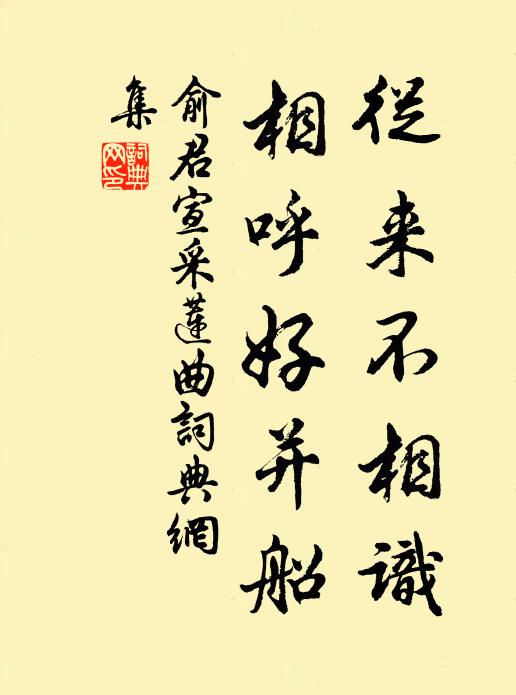 從来不相識
相呼好并船
俞君宣采蓮曲詞典網
集
詞典
网印